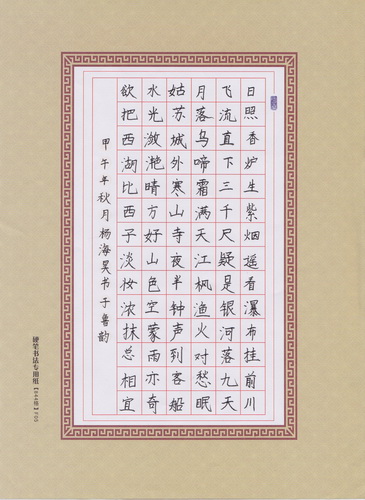 日照香炉生紫烟遥看瀑布挂前川
飞流直下三千尺疑是银河落九天
月落乌啼霜满天江枫渔火对愁眠
姑苏城外寒山寺夜半钟声到客船
水光潋滟晴方好山色空蒙雨亦奇
欲把西湖比西子淡妆浓抹总相宜
甲午年秋月杨海昊书于鲁韵
硬笔书法专用纸